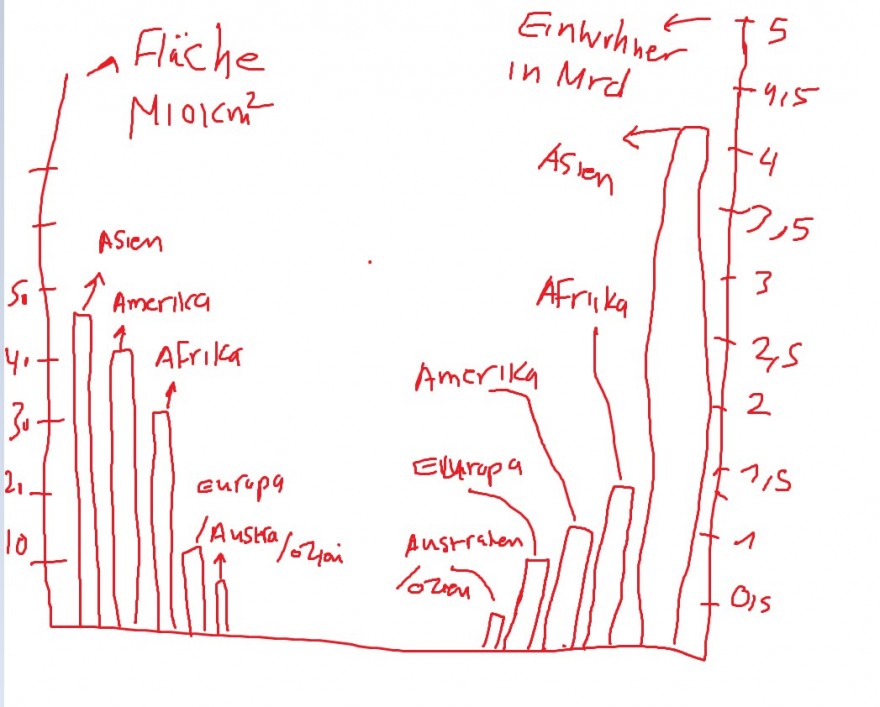 Fläche
Miokm²
Asien
Amerika
Afrika
Europa
/Austra/ozian
50
40
30
20
10
Einwohner
in Mrd
Asien
Afrika
Amerika
Europa
Australien
/ozian
5
4,5
4
3,5
3
2,5
2
1,5
1
0,5